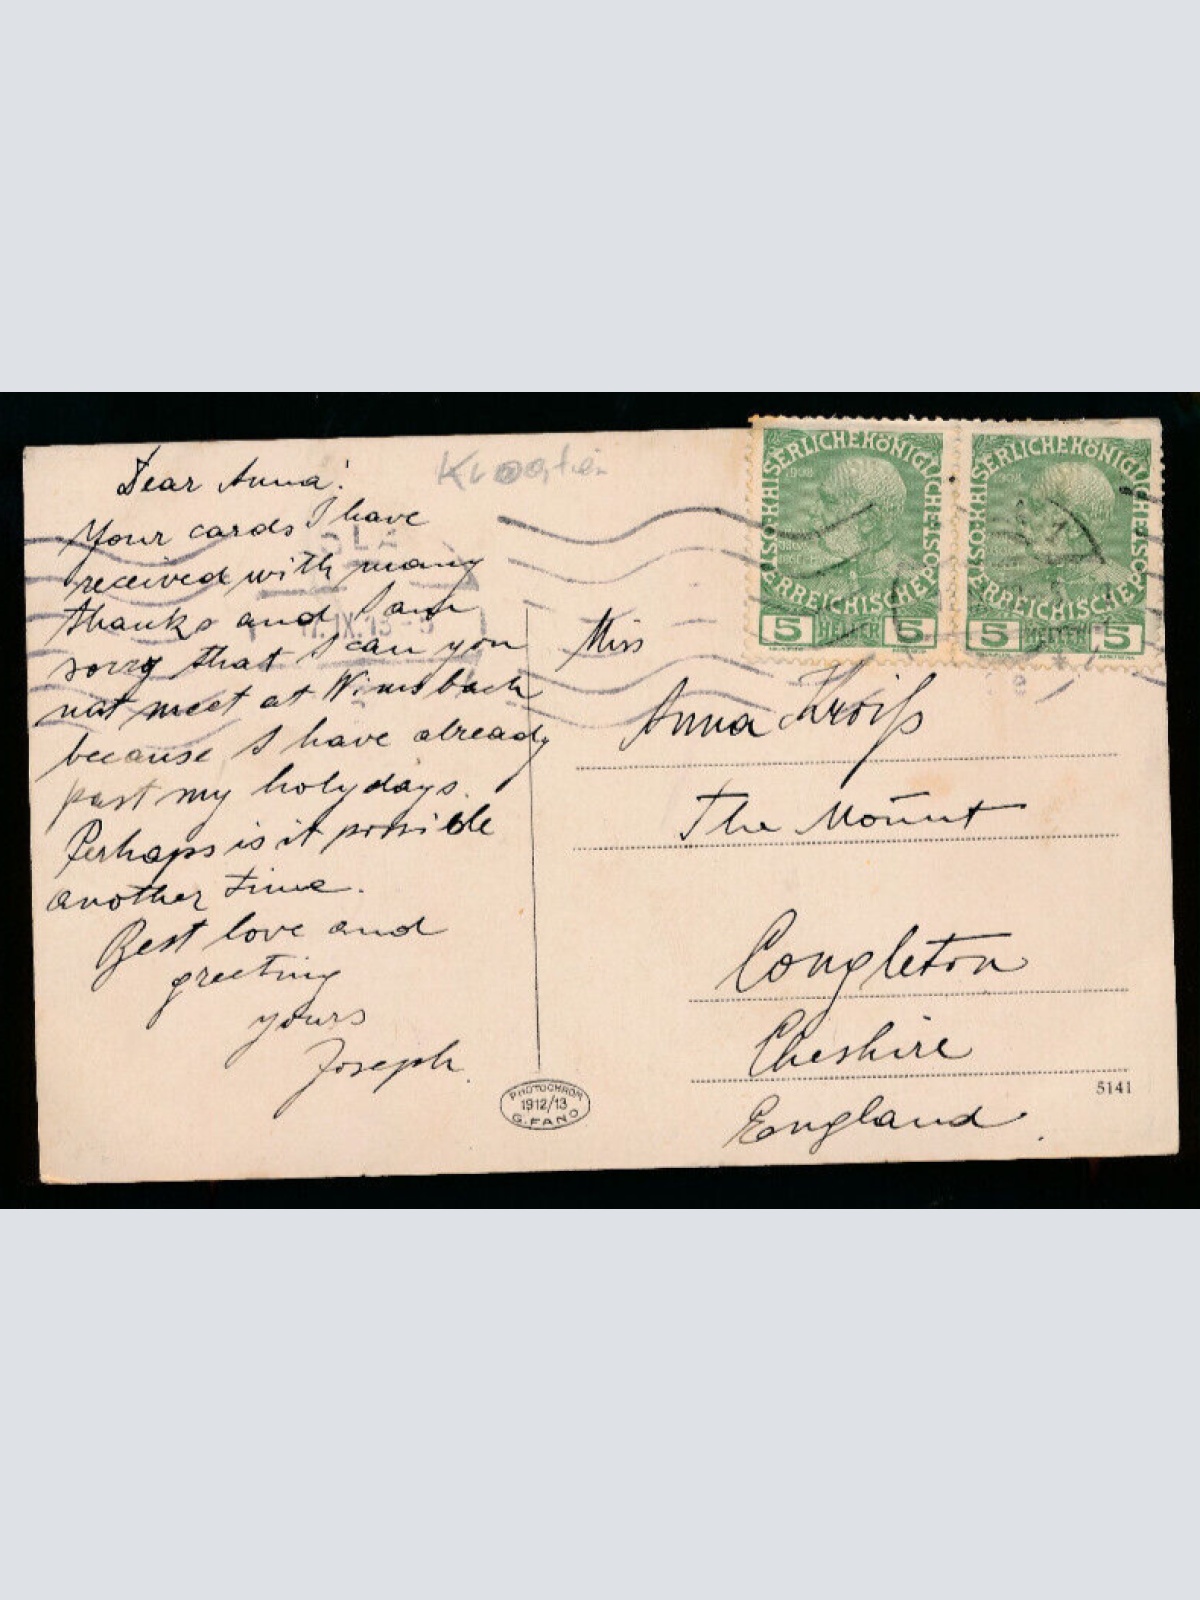 Kroatien
Dear Anna!
Your cards I have
received with many
thanks and I am
sorry that I can you
not meet at Wimsbach
because I have already
past my holydays.
Perhaps is it possible
another time.
Best love and
greeting
yours
Joseph.
Miss
Anna Kroiß
The Mount
Congleton
Cheshire
England.
5141
PHOTOCHROM
1912/13
G. FANO
KAISERLICHE KÖNIGLICHE ÖSTERREICHISCHE POST
1908
5 HELLER 5
KAISERLICHE KÖNIGLICHE ÖSTERREICHISCHE POST
5 HELLER 5
IX.13